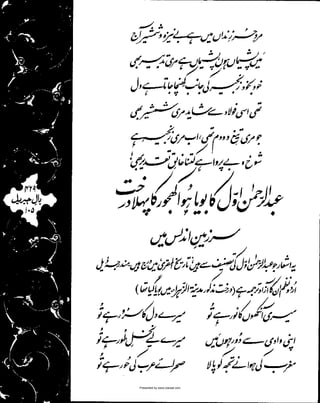 مردِ حُر زنداں میں ہے بے نیزہ و شمشیر آج
میں پشیماں ہوں پشیماں ہے مری تدبیر بھی
خود بخود زنجیر کی جانب کھنچا جاتا ہے دل
تھی اسی فولاد سے شاید مری شمشیر بھی
جو مری تیغِ دو دم تھی اب مری زنجیر ہے
شوخ و بے پروا ہے کتنا خالقِ تقدیر بھی!
۴۲۹
بالِ جبریل
۱۰۵
عبدالرحمٰن اوّل کا بویا ہُوا کھجور کا پہلا درخت
سرزمینِ اندلس میں
یہ اشعار جو عبدالرحمٰن اوّل کی تصنیف سے ہیں تاریخ المقری میں درج ہیں مندرجہ ذیل
اُردو نظم ان کا آزاد ترجمہ ہے (درخت مذکور مدینۃ الزہرا میں بویا گیا تھا)
میری آنکھوں کا نُور ہے تُو میرے دل کا سُرور ہے تُو
اپنی وادی سے دُور ہوں میں میرے لیے نخلِ طُور ہے تُو
مغرب کی ہوا نے تجھ کو پالا صحرائے عرب کی حُور ہے تُو
Presented by www.ziaraat.com